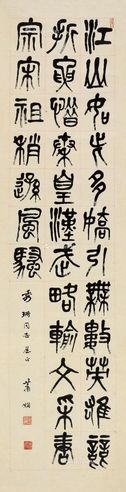 江山如此多嬌引無數英雄競
折腰惜秦皇漢武略輸文采唐
宗宋祖稍遜風騷
同志 正 蕭嫻